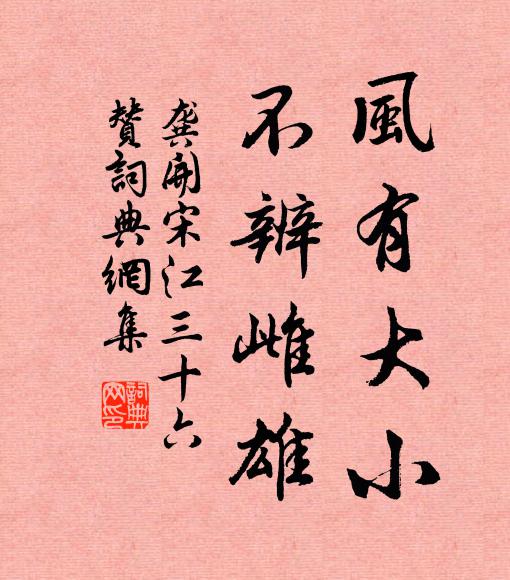 風有大小
不辨雌雄
龔開宋江三十六
贊詞典網集
詞典
网印